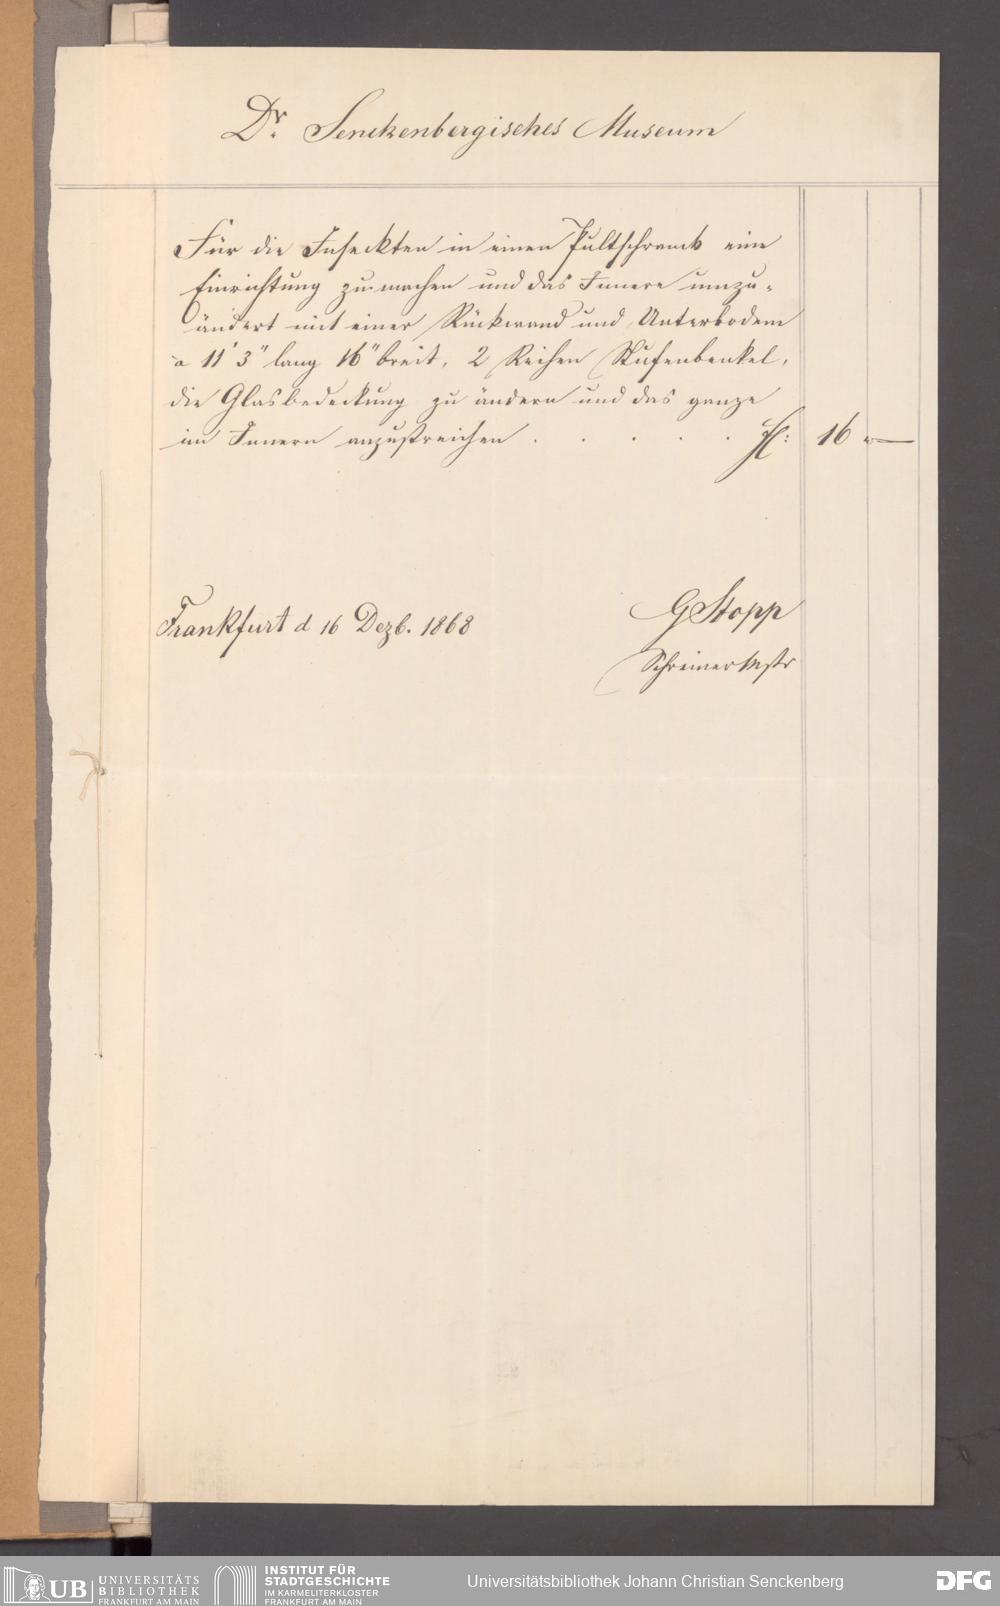 Dr. Senckenbergisches Museum
Für die Insecktten in einen Pultschranck eine
Einrichtung zu machen und das Innere umzu-
ändert mit einer Rückwand und Unterbodem
a 11' 3" lang 16" breit, 2 Reihen Stufenbenkel,
die Glasbedeckung zu ändern und das ganze
im Innern anzustreichen . . . . . fl: 16 "—
Frankfurt d 16 Dezb. 1868
GStopp
Schreinermstr
UB UNIVERSITÄTS
BIBLIOTHEK
FRANKFURT AM MAIN
INSTITUT FÜR
STADTGESCHICHTE
IM KARMELITERKLOSTER
FRANKFURT AM MAIN
Universitätsbibliothek Johann Christian Senckenberg
DFG